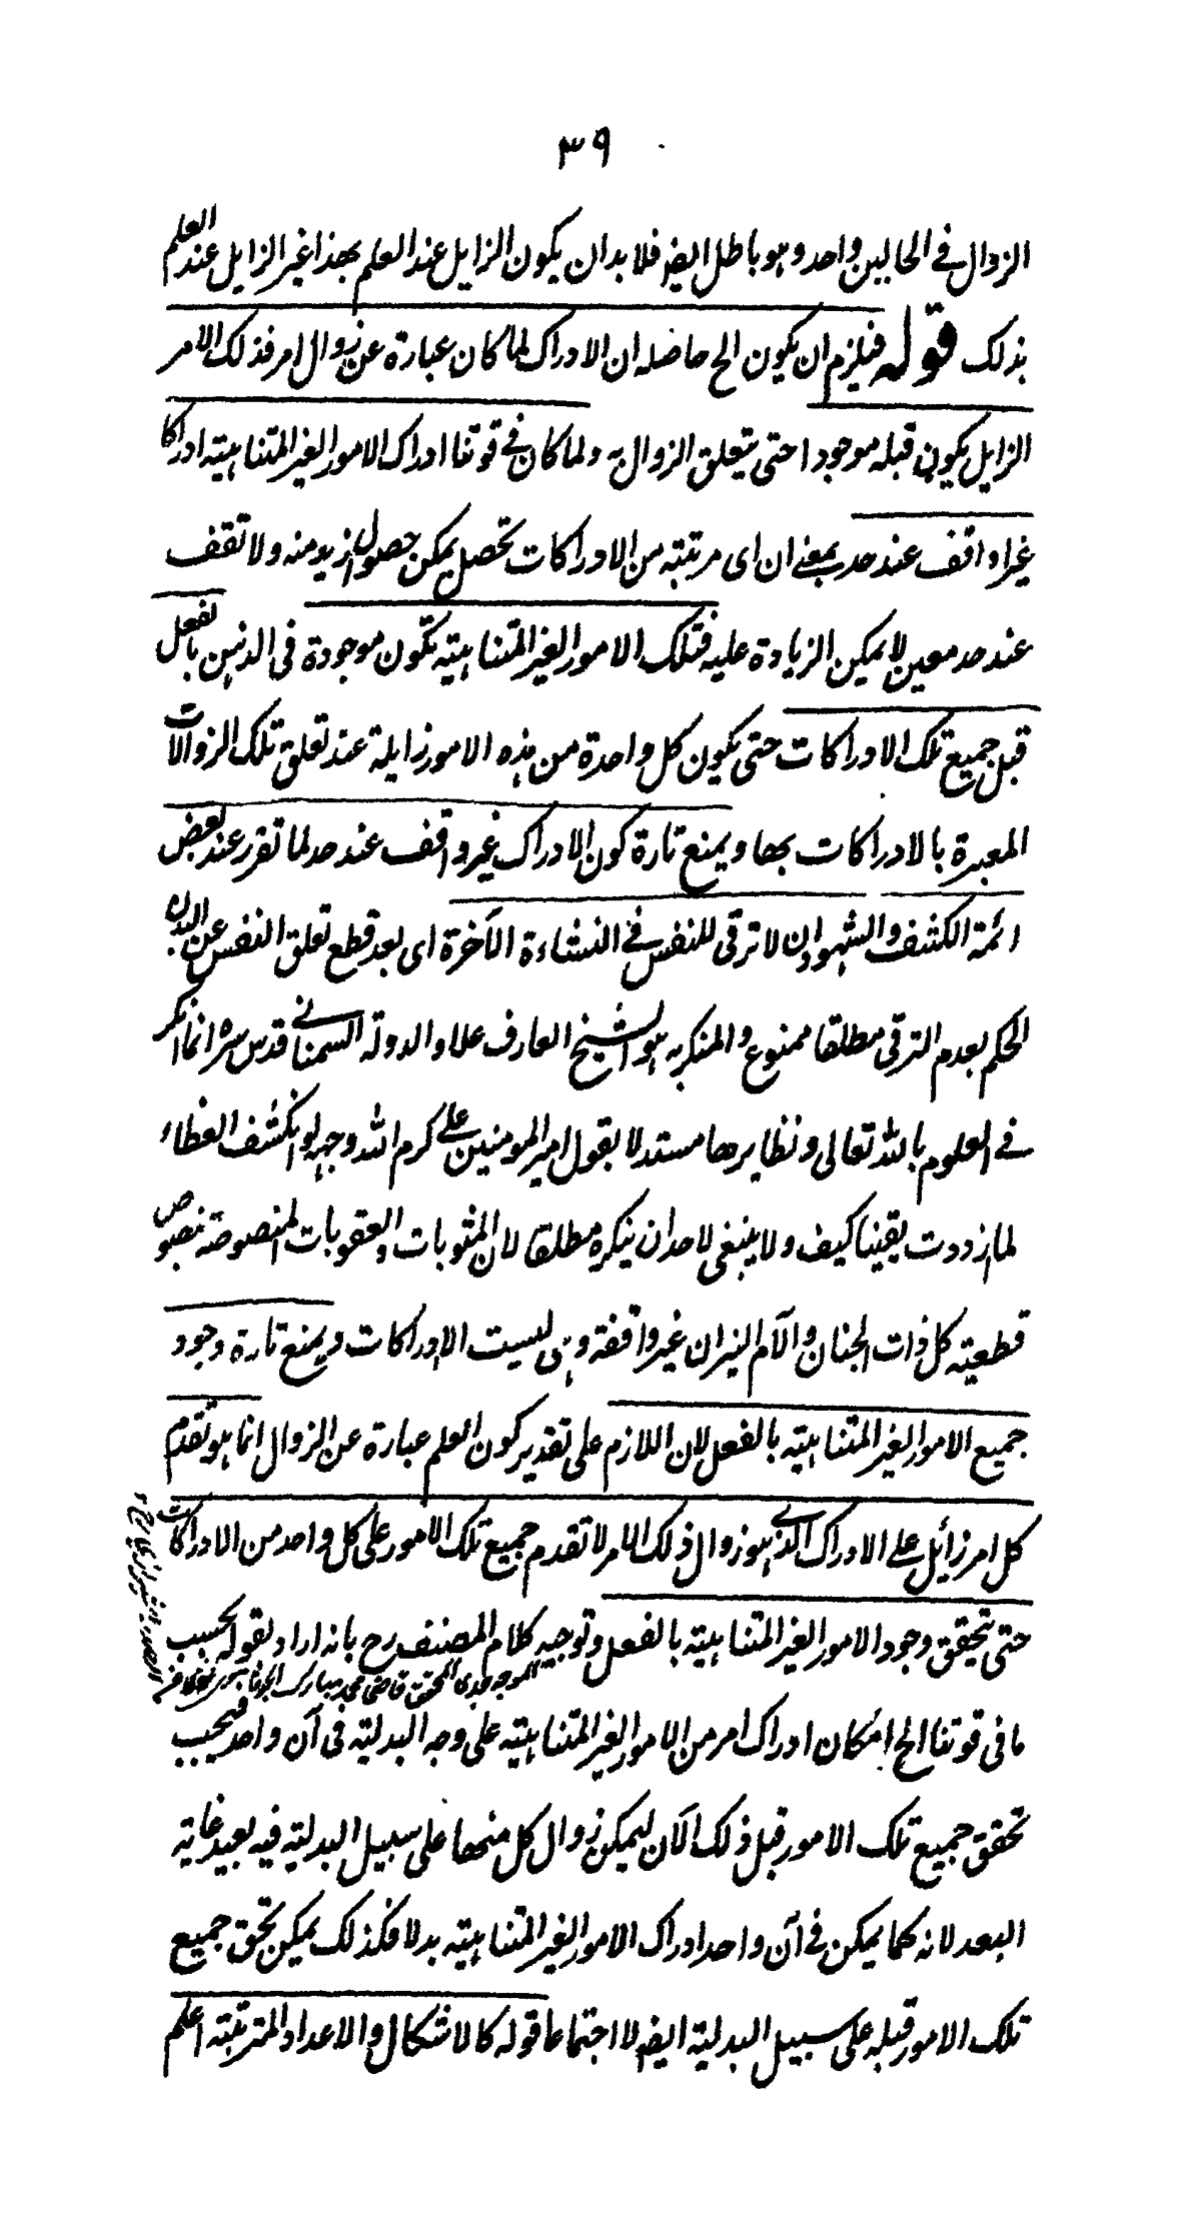 ٣٩
الزوال في الحالين واحد وهو باطل ايضا فلا بد ان يكون الزايل عند العلم بهذا غير الزايل عند العلم
بذلك قوله فيلزم ان يكون الخ حاصله ان الادراك لما كان عبارة عن زوال امر فذلك الامر
الزايل يكون قبله موجودا حتى يتعلق الزوال به ولما كان في قوتنا ادراك الامور الغير المتناهية ادراكا
غير واقف عند حد بمعنى ان اى مرتبة من الادراكات تحصل يمكن حصول ازيد منه ولا تقف
عند حد معين لا يمكن الزيادة عليه فتلك الامور الغير المتناهية تكون موجودة فى الذهن بالفعل
قبل جميع تلك الادراكات حتى يكون كل واحدة من هذه الامور زايلة عند تعلق تلك الزوالات
المعبرة بالادراكات بها ويمنع تارة كون الادراك غير واقف عند حد لما تقرر عند بعض
ائمة الكشف والشهود ان لا ترقى للنفس في النشاءة الآخرة اى بعد قطع تعلق النفس عن البدن
الحكم بعدم الترقى مطلقا ممنوع والمنكر به هو الشيخ العارف علاء الدولة السمناني قدس سره انما انكر
في العلوم بالله تعالى ونظايرها مستدلا بقول امير المومنين علي كرم الله وجهه لو انكشف الغطاء
لما ازددت يقينا كيف ولا ينبغى لاحد ان ينكره مطلقا لان المثوبات والعقوبات المنصوصة بنصوص
قطعية كلذات الجنان والآم النيران غير واقفة وهى ليست الا ادراكات ويمنع تارة وجود
جميع الامور الغير المتناهية بالفعل لان اللازم على تقدير كون العلم عبارة عن الزوال انما هو تقدم
كل امر زائل على الادراك الذي هو زوال ذلك الامر لا تقدم جميع تلك الامور على كل واحد من الادراكات
حتى يتحقق وجود الامور الغير المتناهية بالفعل وتوجيه كلام المصنف رح بانه اراد بقوله بحسب
الموجه جدى المحقق قاضى محمد مبارك
ما فى قوتنا الخ امكان ادراك امر من الامور الغير المتناهية على وجه البدلية فى آن واحد فيجب
تحقق جميع تلك الامور قبل ذلك الآن ليمكن زوال كل منها على سبيل البدلية فيه بعيد غاية
البعد لانه كما يمكن في آن واحد ادراك الامور الغير المتناهية بدلا فكذلك يمكن تحقق جميع
تلك الامور قبله على سبيل البدلية ايضا لا اجتماعا قوله كالاشكال والاعداد المترتبة اعلم